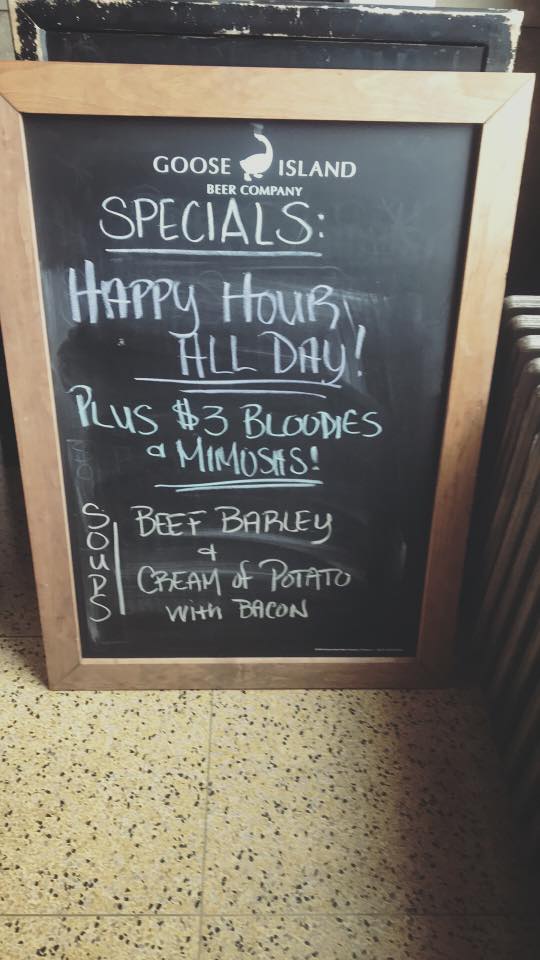 GOOSE ISLAND
BEER COMPANY
SPECIALS:
HAPPY HOUR
ALL DAY!
PLUS $3 BLOODIES
& MIMOSAS!
SOUPS
BEEF BARLEY
&
CREAM of POTATO
with BACON